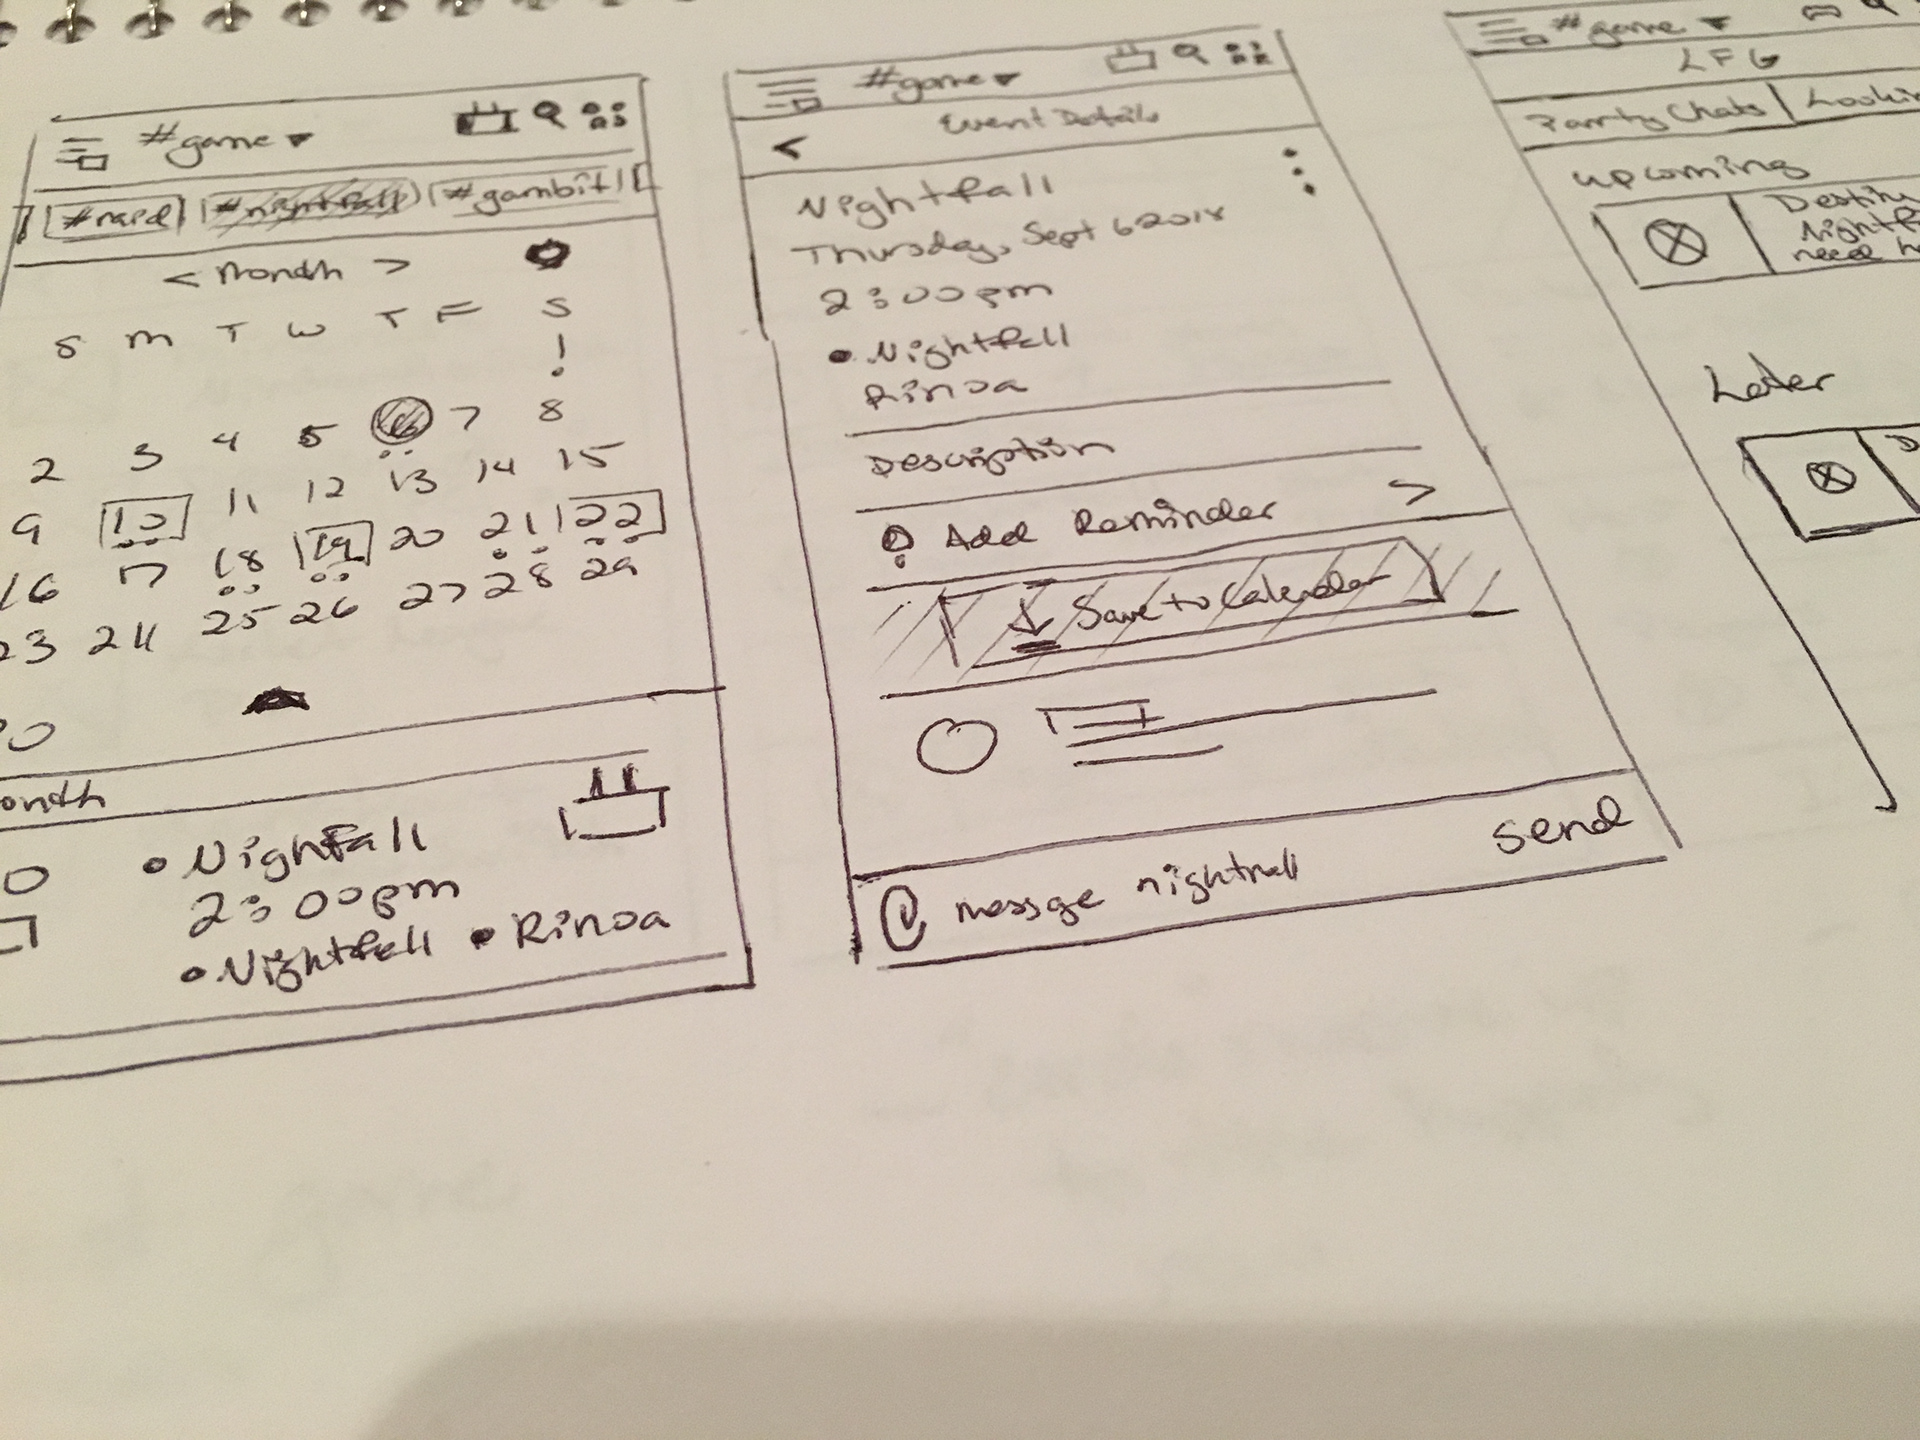 #game
#raid #nightfall #gambit
< month >
S M T W T F S
1
2 3 4 5 6 7 8
9 10 11 12 13 14 15
16 17 18 19 20 21 22
23 24 25 26 27 28 29
30
onth
• Nightfall
2:00pm
• Nightfall • Rinoa
#game
Event Details
<
Nightfall
Thursday, Sept 6 2018
2:00pm
• Nightfall
Rinoa
Description
Add Reminder >
Save to Calendar
message nightfall
Send
#game
LFG
Party Chats Lookin
upcoming
Destiny
Nightf
need he
Later
D